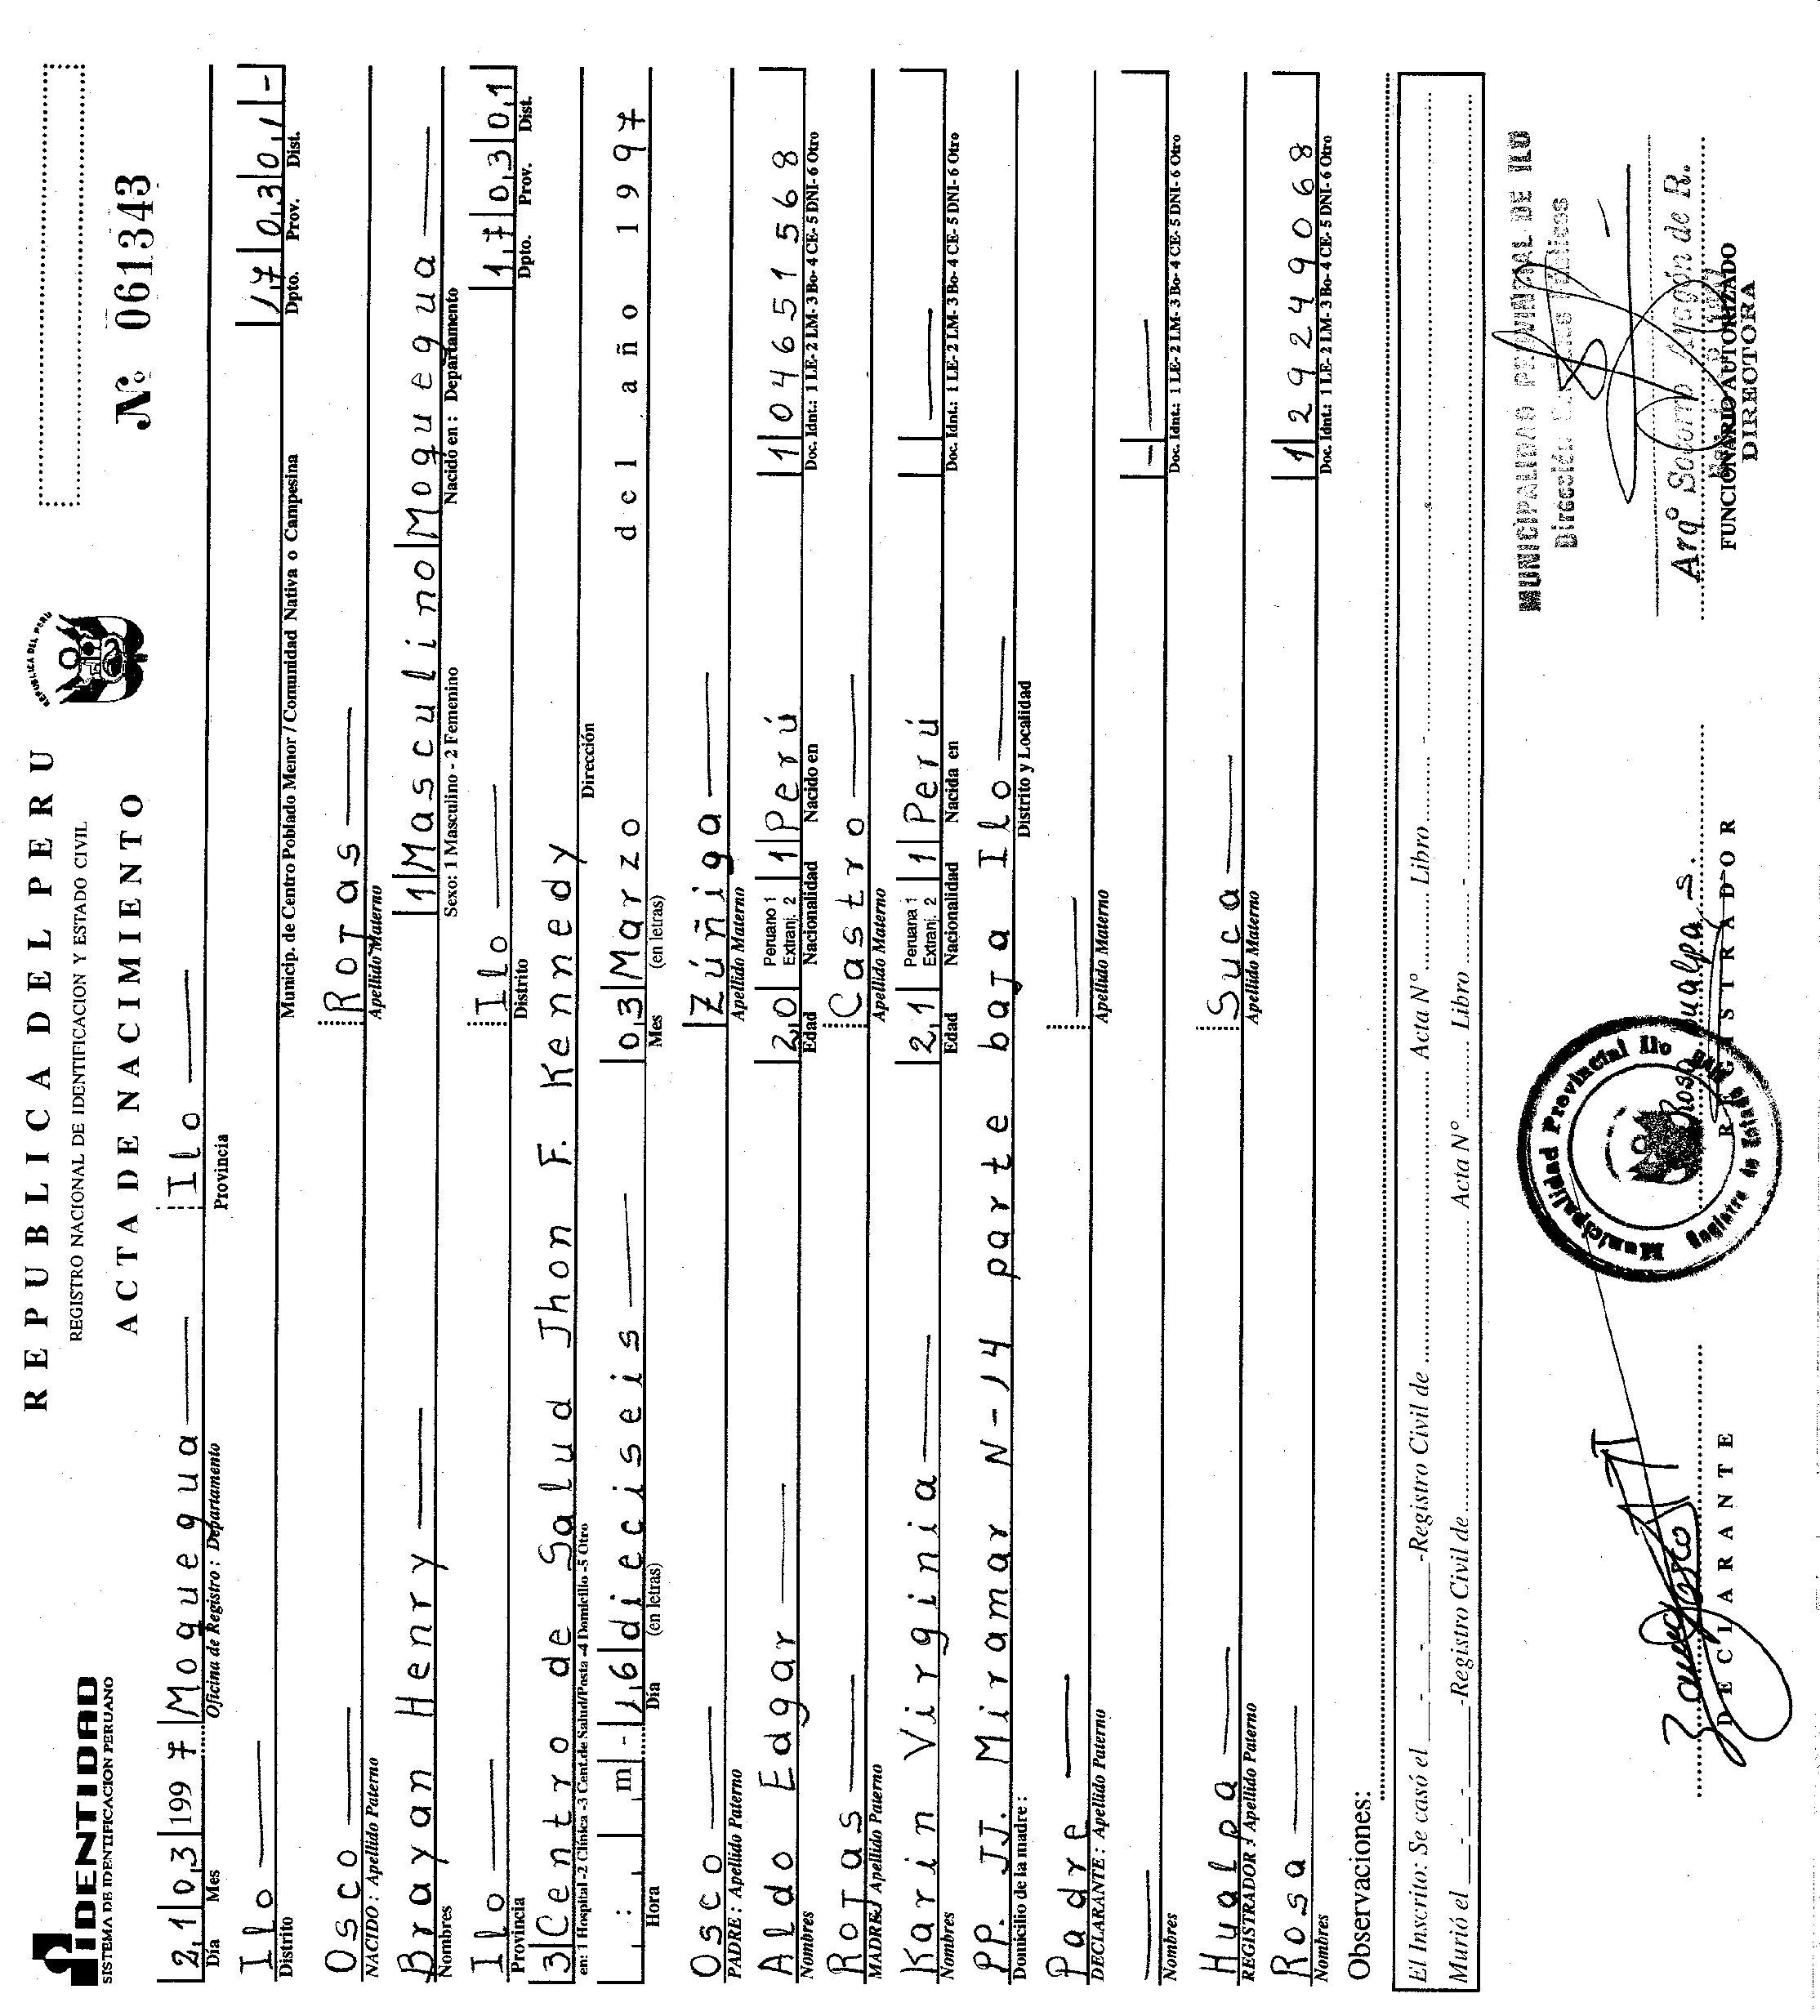 IDENTIDAD
SISTEMA DE IDENTIFICACION PERUANO
REPUBLICA DEL PERU
REGISTRO NACIONAL DE IDENTIFICACION Y ESTADO CIVIL
ACTA DE NACIMIENTO
REPUBLICA DEL PERU
Nº 061343
21 03 1997 Moquegua Ilo
Día Mes Oficina de Registro : Departamento Provincia
Ilo 17 03 01 -
Distrito Municip. de Centro Poblado Menor / Comunidad Nativa o Campesina Dpto. Prov. Dist.
Osco Rojas
NACIDO : Apellido Paterno Apellido Materno
Brayan Henry 1 Masculino Moquegua
Nombres Sexo: 1 Masculino - 2 Femenino Nacido en : Departamento
Ilo Ilo 17 03 01
Provincia Distrito Dpto. Prov. Dist.
3 Centro de Salud Jhon F. Kennedy
en: 1 Hospital -2 Clínica -3 Cent.de Salud/Posta -4 Domicilio -5 Otro Dirección
: m - 16 dieciseis 03 Marzo del año 1997
Hora Día (en letras) Mes (en letras)
Osco Zúñiga
PADRE : Apellido Paterno Apellido Materno
Aldo Edgar 20 Peruano 1 Extranj. 2 1 Perú 1 04651568
Nombres Edad Nacionalidad Nacido en Doc. Idnt.: 1 LE- 2 LM- 3 Bo- 4 CE- 5 DNI- 6 Otro
Rojas Castro
MADRE: Apellido Paterno Apellido Materno
Karin Virginia 21 Peruana 1 Extranj. 2 1 Perú
Nombres Edad Nacionalidad Nacida en Doc. Idnt.: 1 LE- 2 LM- 3 Bo- 4 CE- 5 DNI- 6 Otro
PP. JJ. Miramar N-14 parte baja Ilo
Domicilio de la madre : Distrito y Localidad
Padre
DECLARANTE : Apellido Paterno Apellido Materno
Nombres Doc. Idnt.: 1 LE- 2 LM- 3 Bo- 4 CE- 5 DNI- 6 Otro
Hualpa Suca
REGISTRADOR : Apellido Paterno Apellido Materno
Rosa 1 29249068
Nombres Doc. Idnt.: 1 LE- 2 LM- 3 Bo- 4 CE- 5 DNI- 6 Otro
Observaciones:
El Inscrito: Se casó el - - -Registro Civil de Acta Nº Libro -
Murió el - - -Registro Civil de Acta Nº Libro -
MUNICIPALIDAD PROVINCIAL DE ILO
Dirección
Municipalidad Provincial Ilo
Registro de Estado Civil
Osco
Rosa Hualpa S.
Arqº Socorro de R.
DECLARANTE REGISTRADOR FUNCIONARIO AUTORIZADO
DIRECTORA